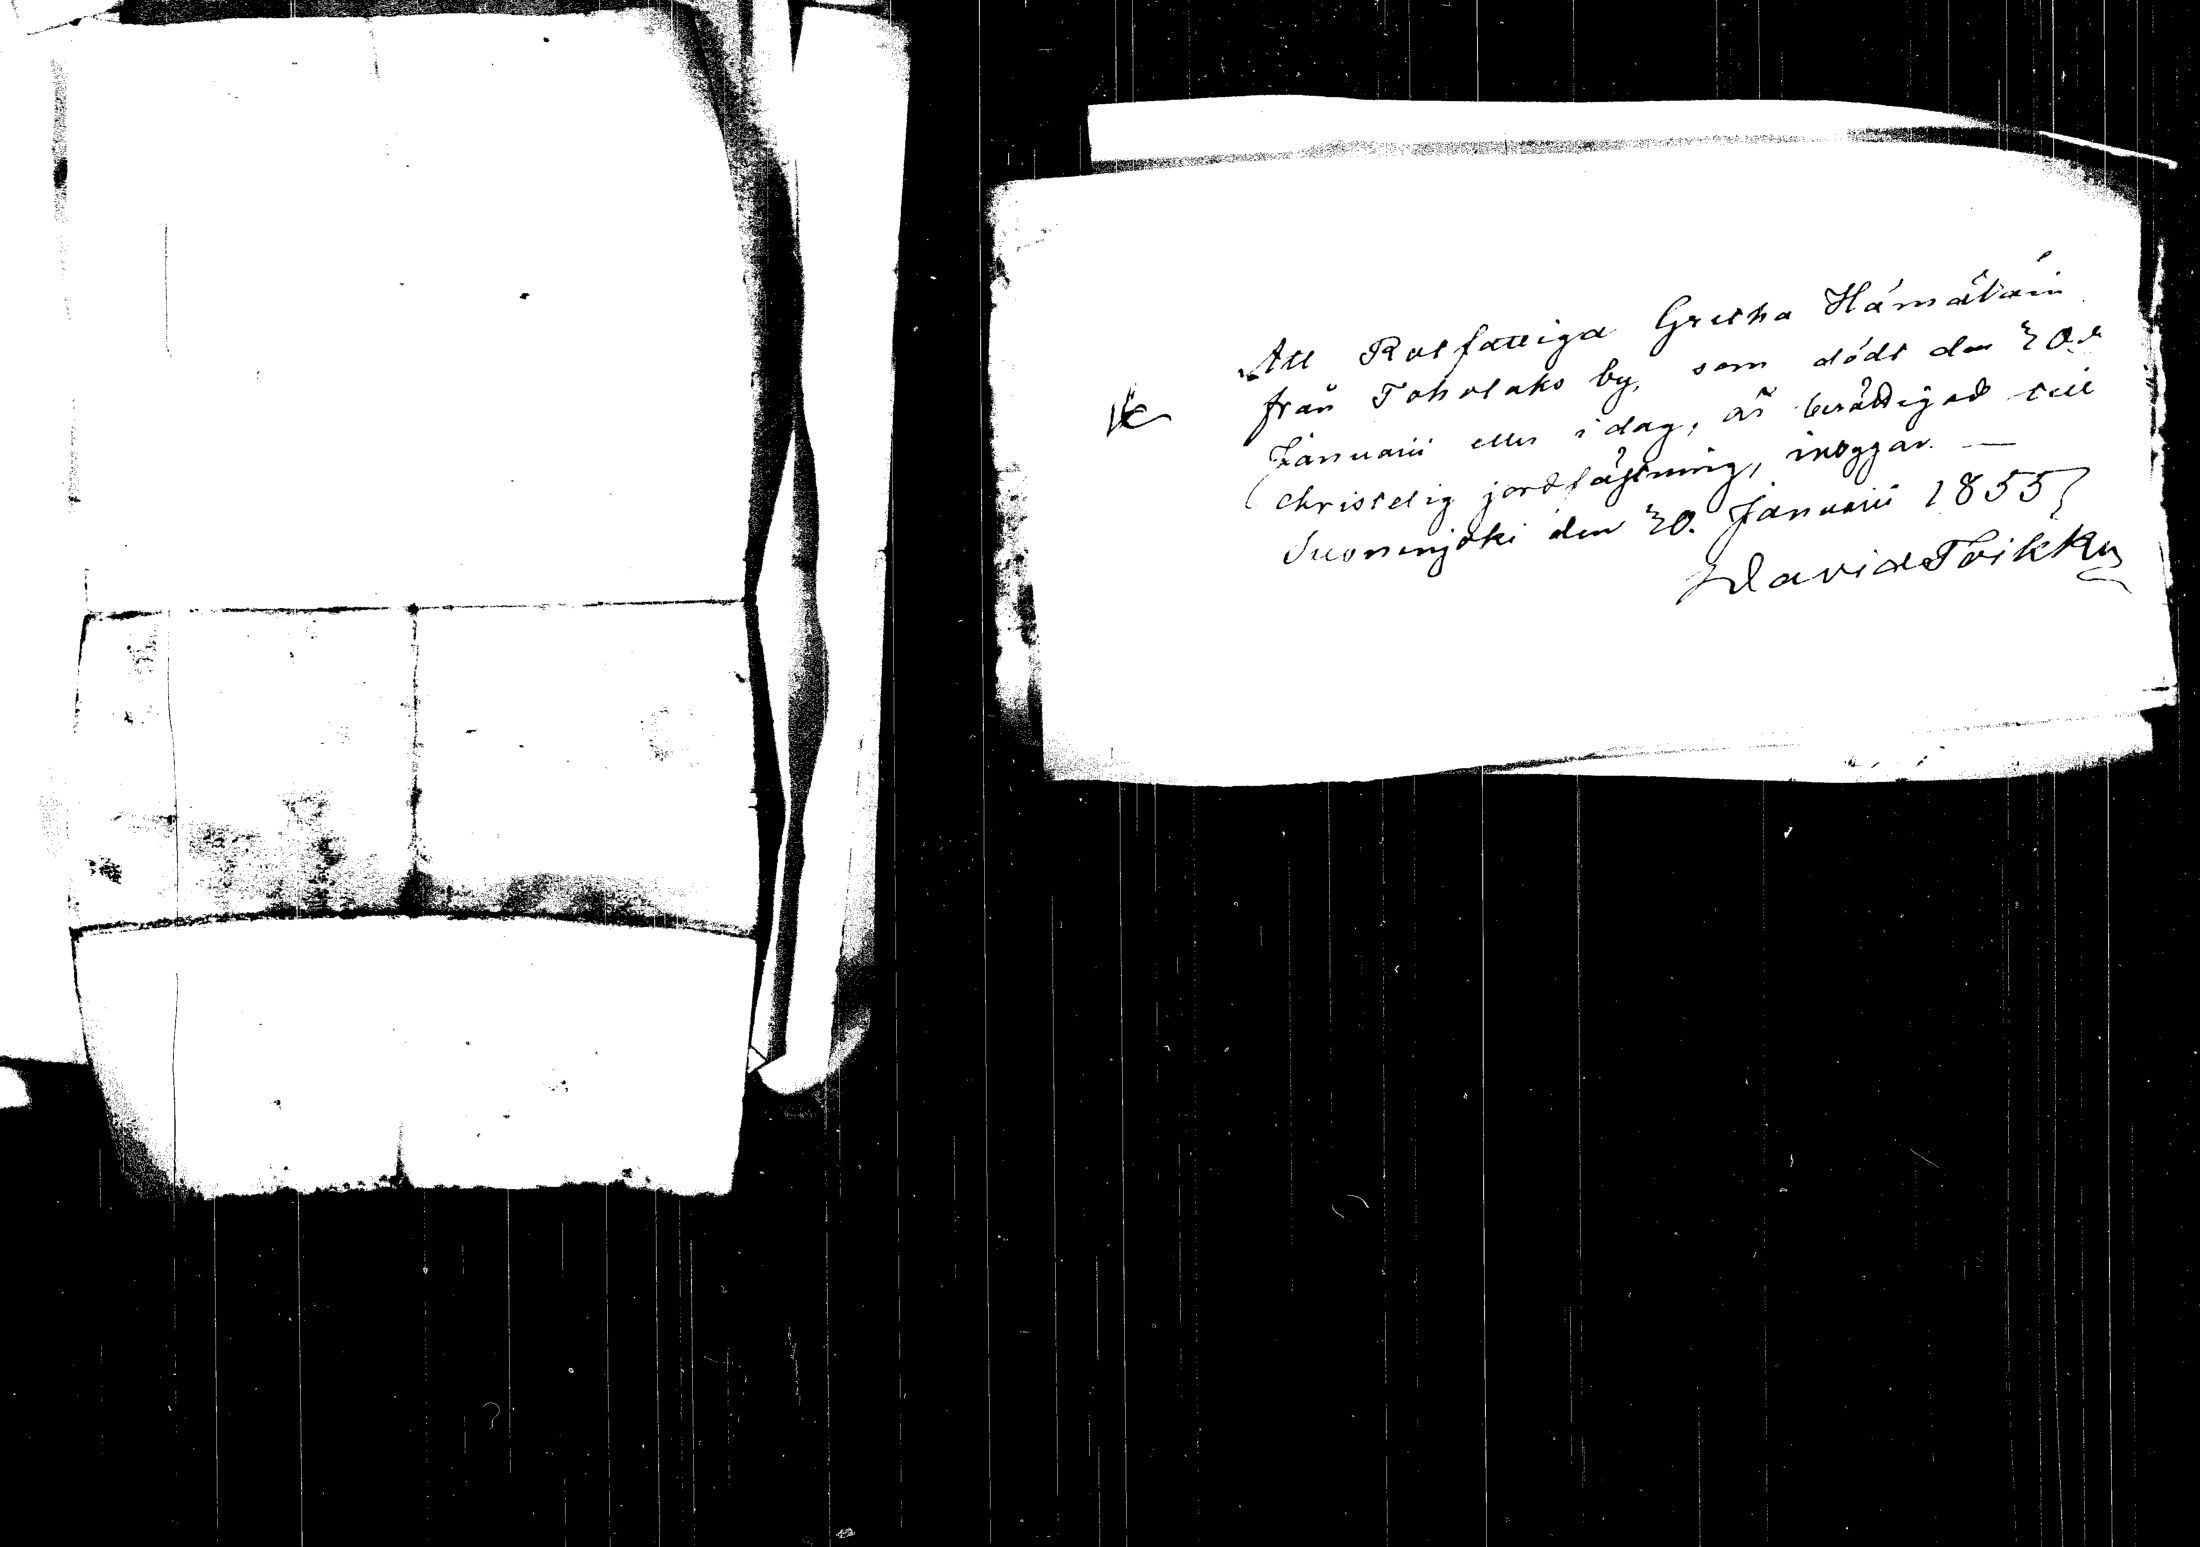 Att Rotfattiga Gretha Hämäläin
från Toholaks by, som dödt den 30de
Januarii eller i dag, är berättigad till
christelig jordfästning, intygar. —
Suonenjoki den 30. Januarii 1855
David Toikka